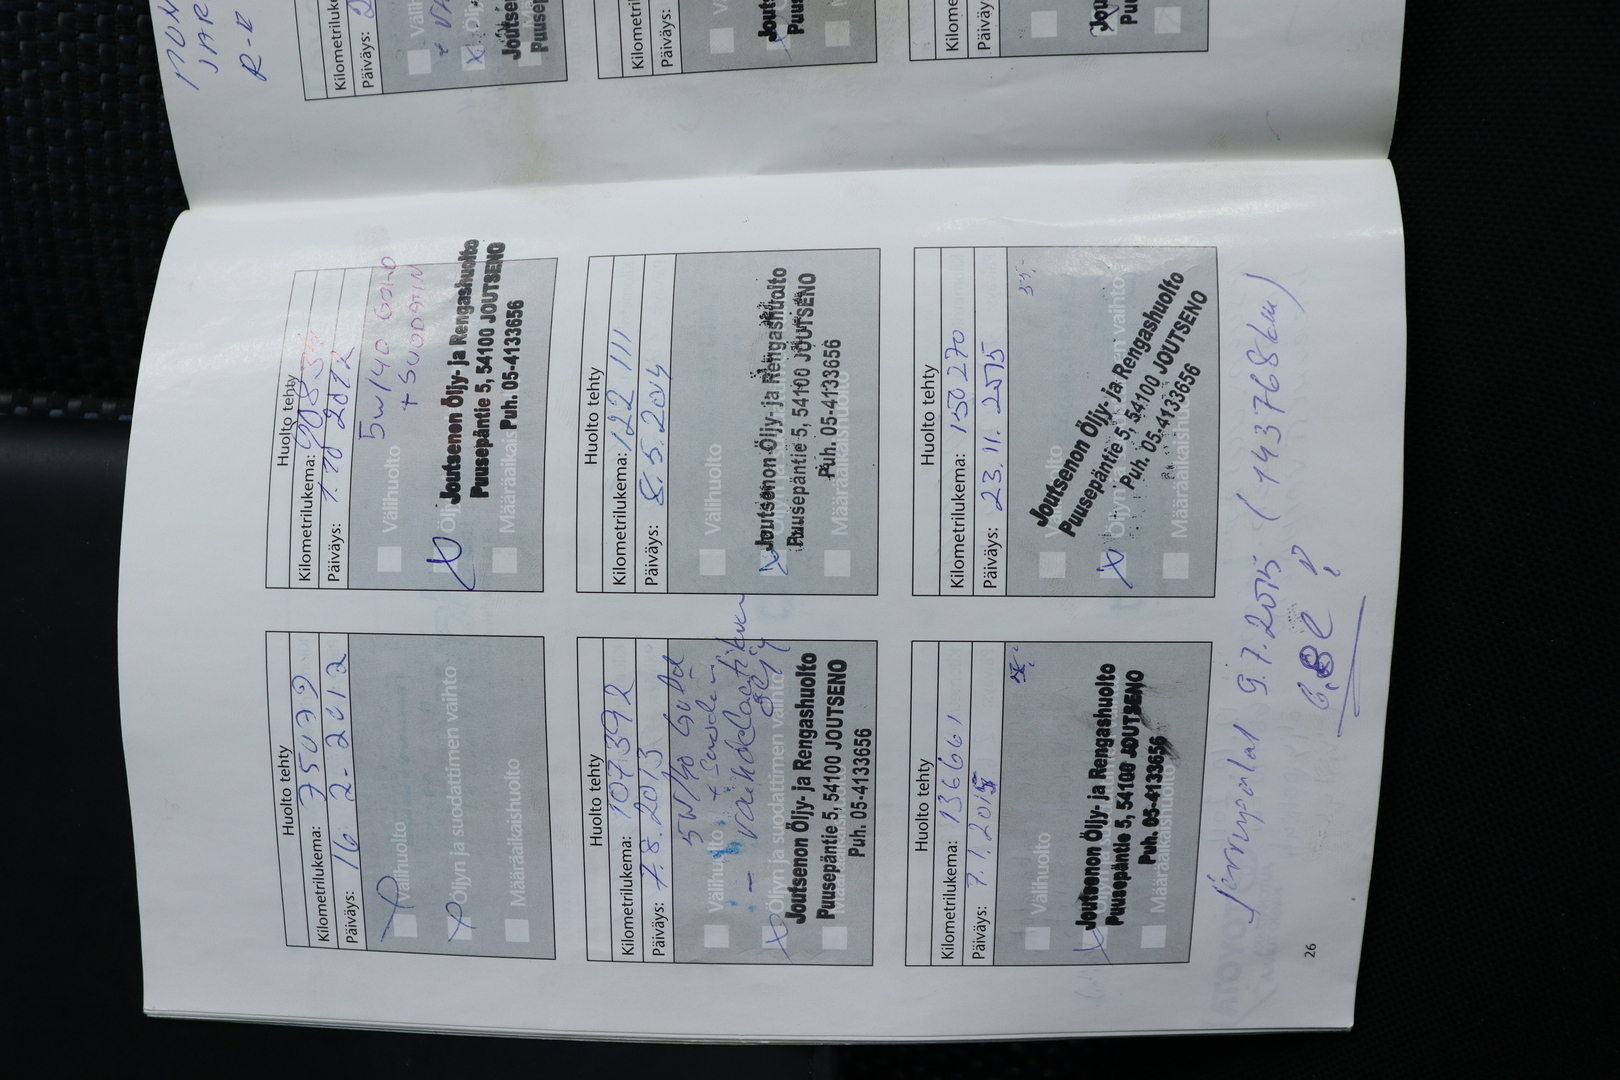 Huolto tehty
Kilometrilukema: 75039
Päiväys: 16 2-2012
Välihuolto
Öljyn ja suodattimen vaihto
Määräaikaishuolto
Huolto tehty
Kilometrilukema:
Päiväys: 1.10 2012
5W/40 GOLD
+ SUODATIN
Välihuolto
Joutsenon Öljy- ja Rengashuolto
Puusepäntie 5, 54100 JOUTSENO
Puh. 05-4133656
Määräaikais
Huolto tehty
Kilometrilukema: 107392
Päiväys: 7.8.2013
5W/40 Gold
Välihuolto
- vaihdelaatikon
öljy
Öljyn ja suodattimen vaihto
Joutsenon Öljy- ja Rengashuolto
Puusepäntie 5, 54100 JOUTSENO
Puh. 05-4133656
Huolto tehty
Kilometrilukema: 122 111
Päiväys: 8.5.2014
Välihuolto
Joutsenon Öljy- ja Rengashuolto
Puusepäntie 5, 54100 JOUTSENO
Puh. 05-4133656
Määräaikaishuolto
Huolto tehty
Kilometrilukema: 136661
Päiväys: 7.1.2015
Välihuolto
Joutsenon Öljy- ja Rengashuolto
Puusepäntie 5, 54100 JOUTSENO
Puh. 05-4133656
Määräaikaishuolto
Huolto tehty
Kilometrilukema: 150270
Päiväys: 23.11.2015
Joutsenon Öljy- ja Rengashuolto
Puusepäntie 5, 54100 JOUTSENO
Puh. 05-4133656
Määräaikaishuolto
Jarrupalat 9.7.2015 (143768km)
26